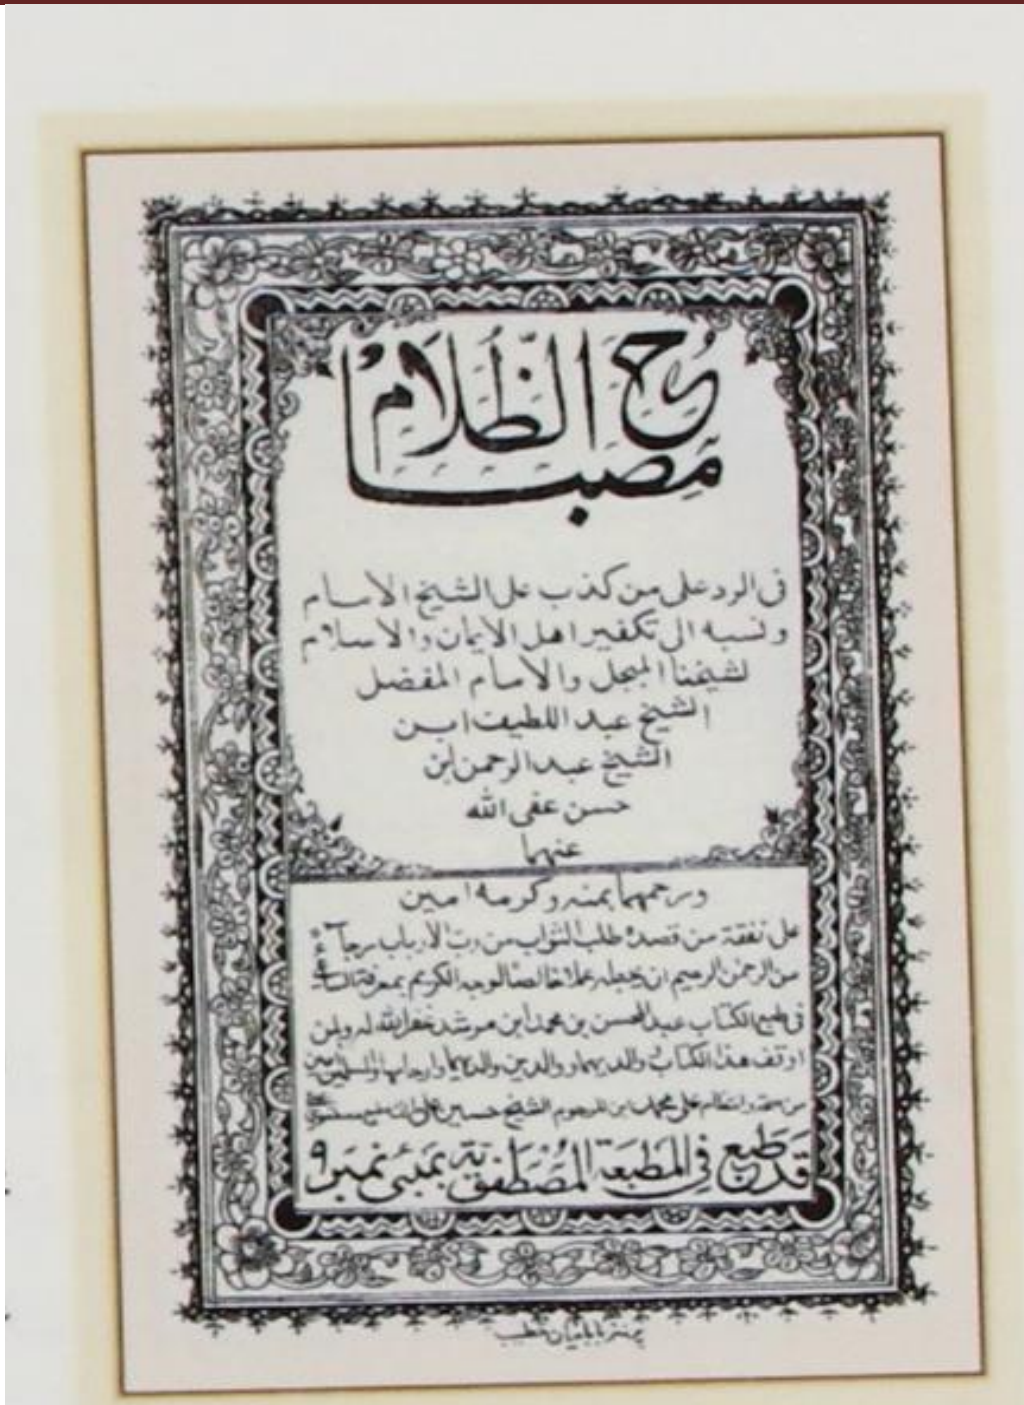 مصباح الظلام
في الرد على من كذب على الشيخ الامام
ونسبه الى تكفير اهل الايمان والاسلام
لشيخنا المبجل والامام المفضل
الشيخ عبد اللطيف ابن
الشيخ عبد الرحمن بن
حسن عفى الله
عنهما
ورحمهما بمنه وكرمه امين
على نفقة من قصده طلب الثواب من رب الارباب رجاء
من الرحمن الرحيم ان يجعله عملا خالصا لوجه الكريم بمعرفة
في طبع الكتاب عبد المحسن بن محمد ابن مرشد غفر الله له ولمن
اوقف هذا الكتاب ولوالديهما ووالدين والديهما وارحامهما والمسلمين
على محمد ابن المرحوم الشيخ حسين على
قد طبع في المطبعة المصطفوية بمبئي نمبر ٩